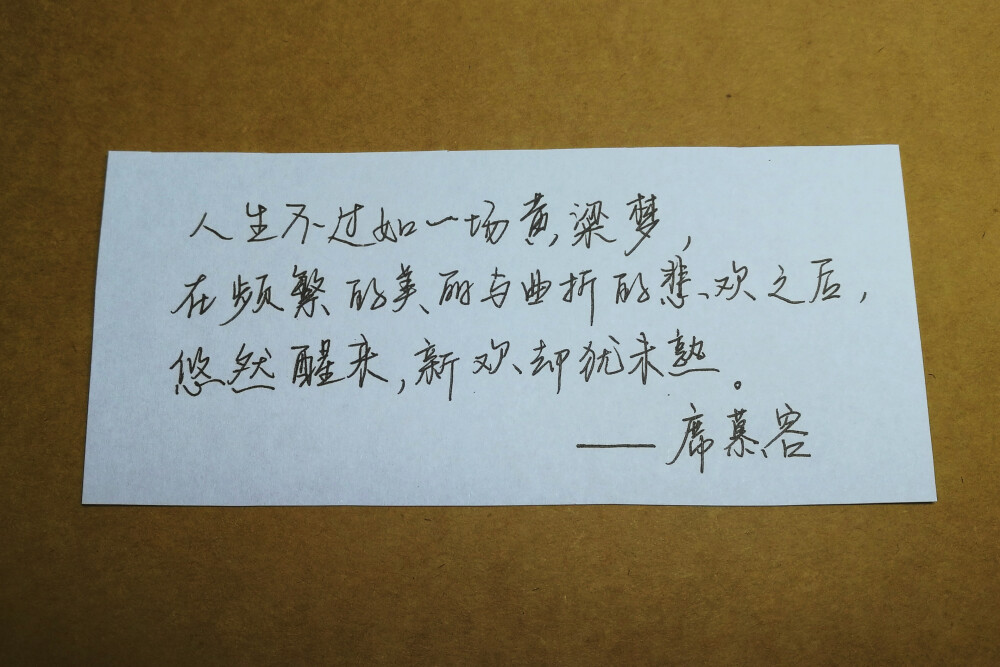 人生不过如一场黄粱梦，
在频繁的美丽与曲折的悲欢之后，
悠然醒来，新欢却犹未熟。
——席慕容